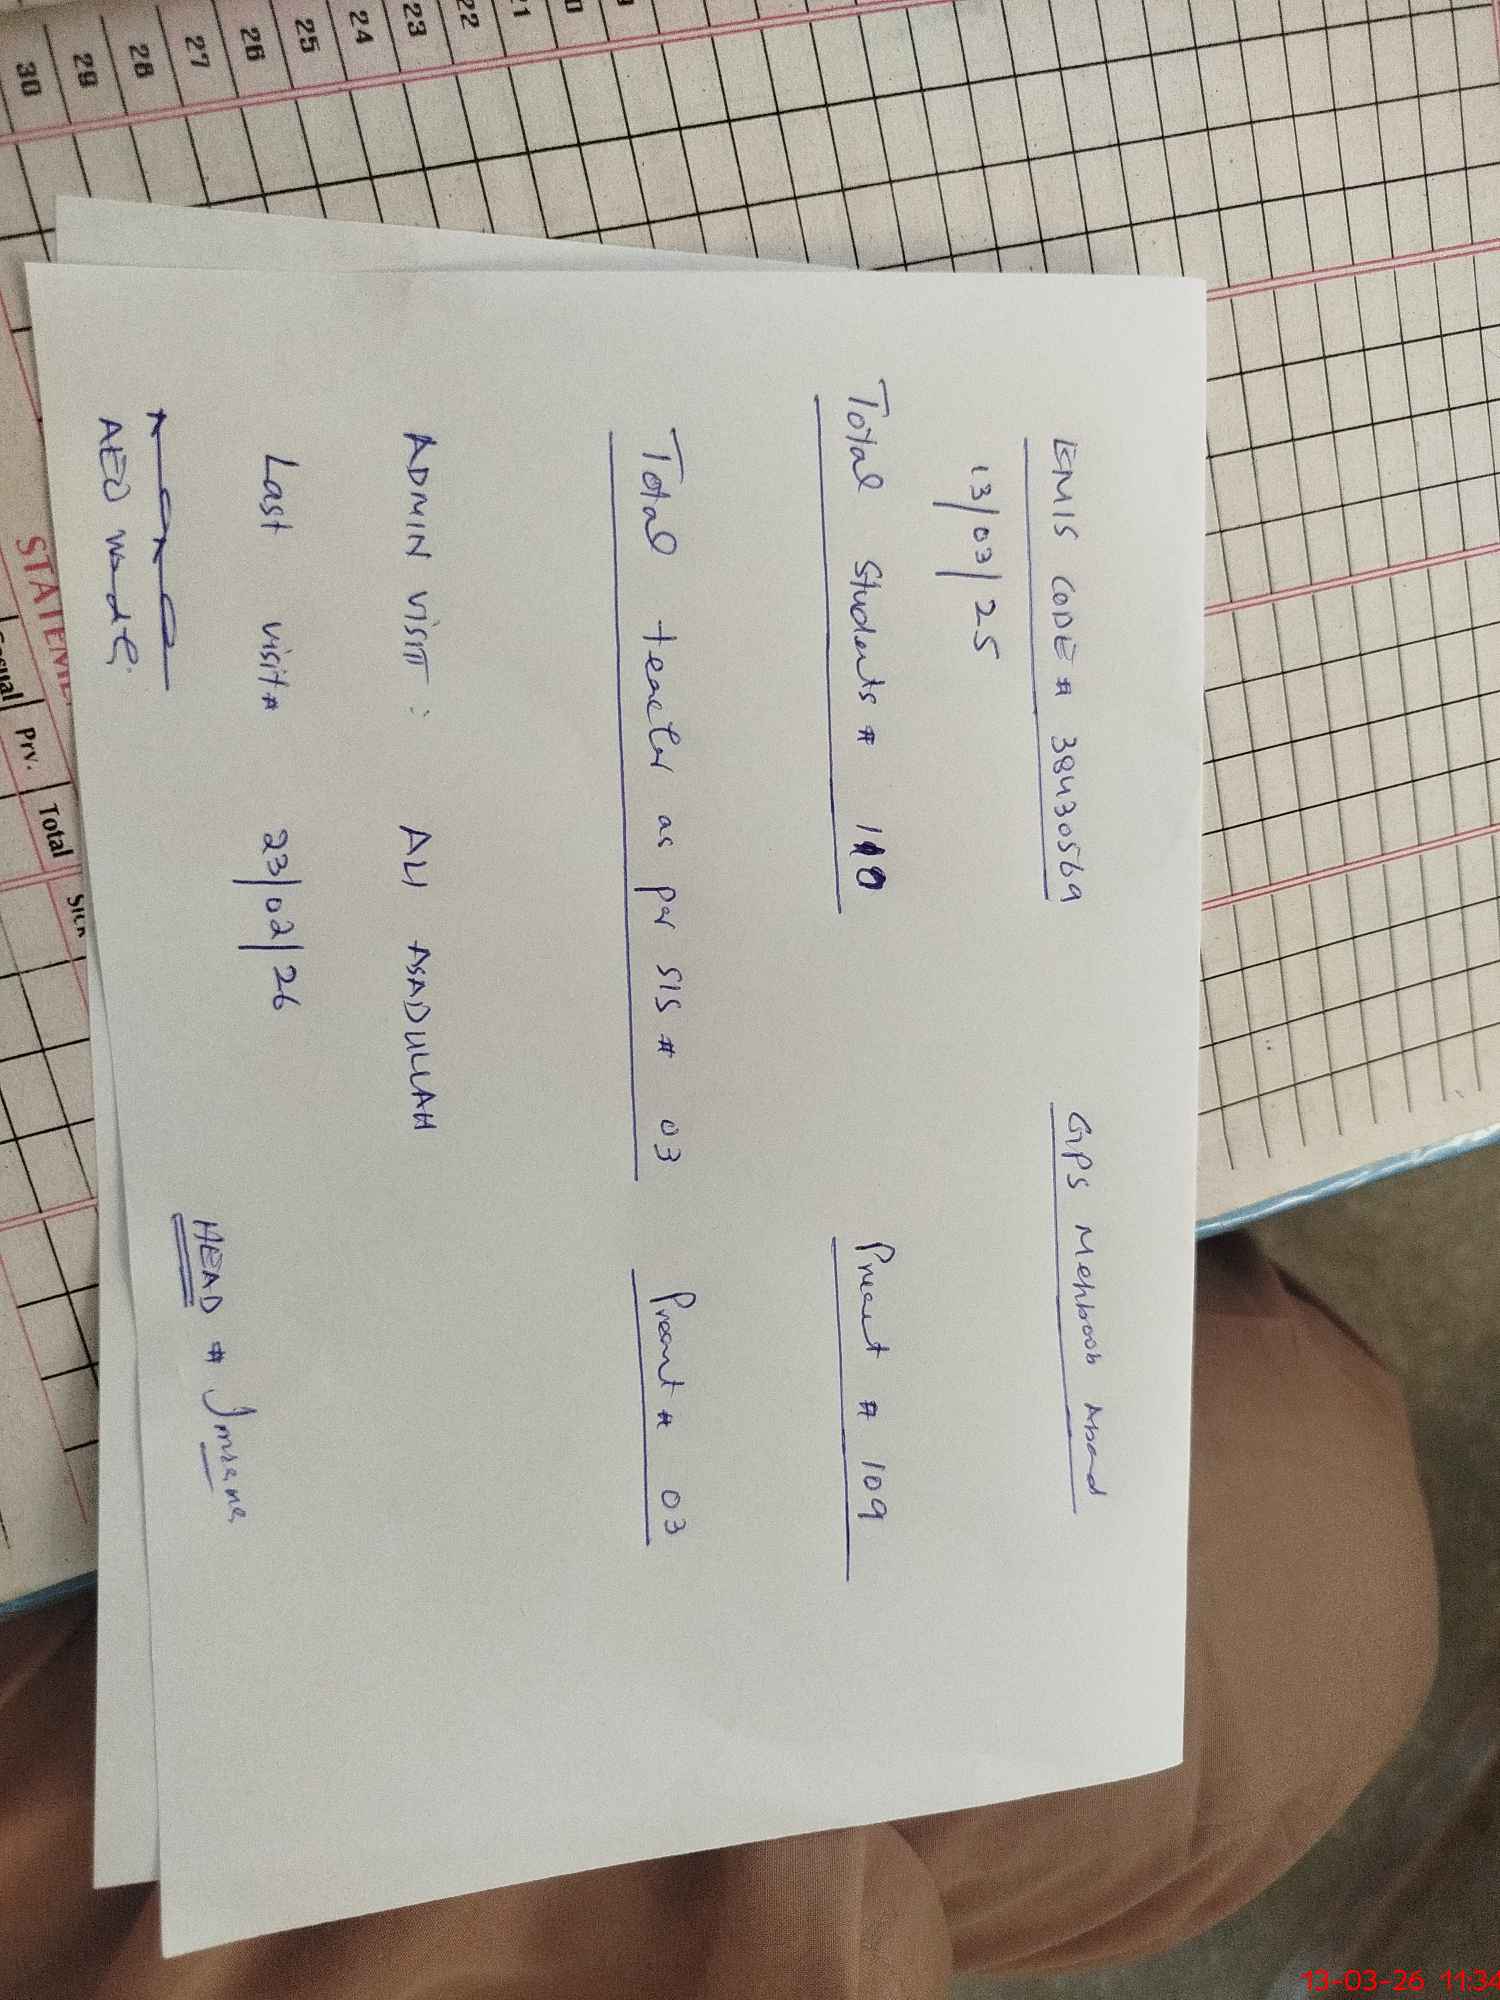 EMIS CODE # 38430569
GPS Mehboob Abad
13/03/25
Total Students # 110
Present # 109
Total teacher as per SIS # 03
Present # 03
ADMIN VISIT : ALI ASADULLAH
Last visit # 23/02/26
HEAD # Imrana
AEO
30 29 28 27 26 25 24 23 22
STATEM
Casual Prv. Total Sick
13-03-26 11:34